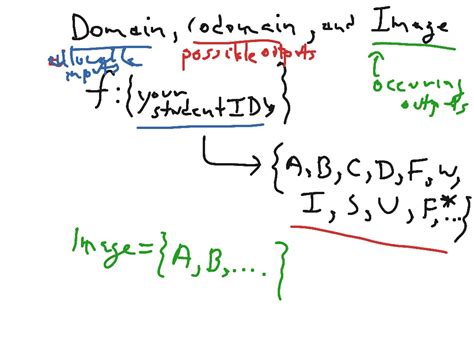 Domain, codomain, and Image
allowable inputs
possible outputs
occuring outputs
f: {your studentIDs}
{A, B, C, D, F, W,
I, S, U, F*, ...}
Image = {A, B, ....}